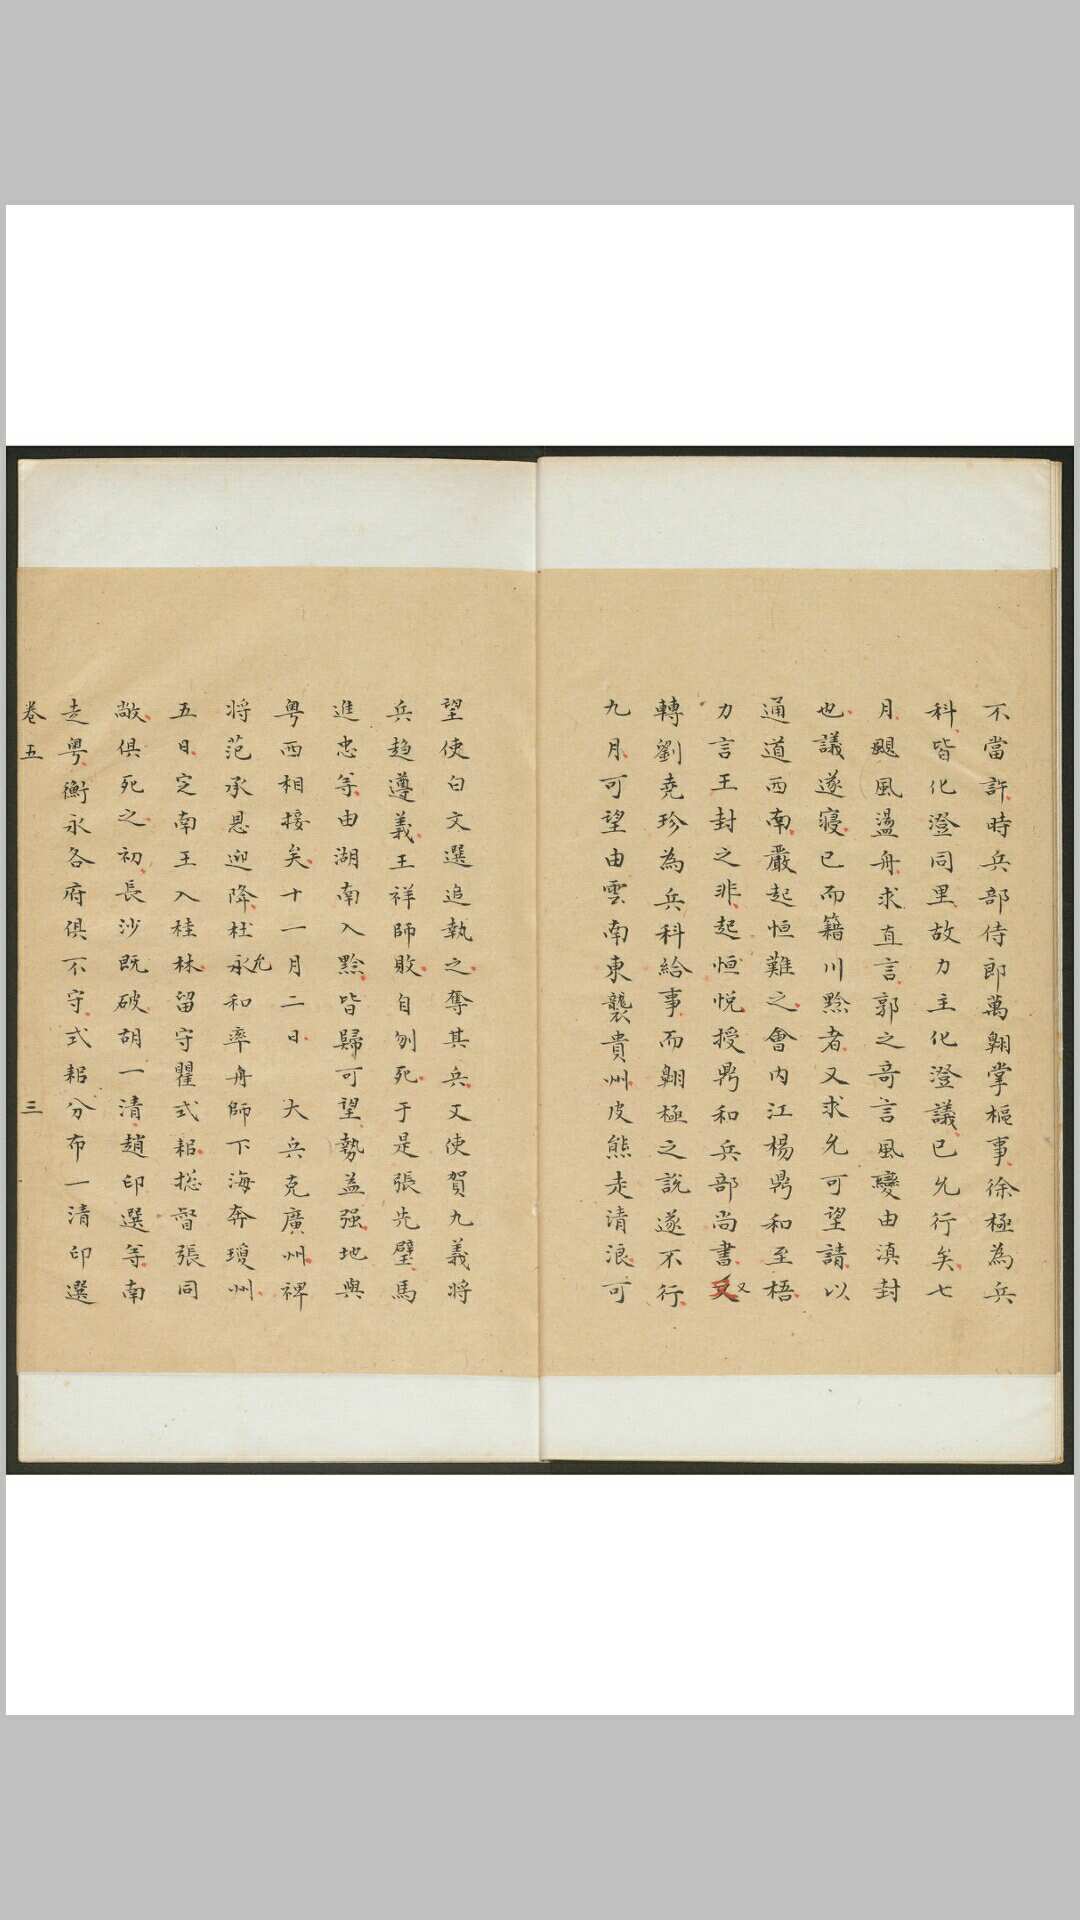 不當許時兵部侍郎萬翱掌樞事徐極為兵
科皆化澄同里故力主化澄議已允行矣七
月颶風盪舟求直言郭之奇言風變由滇封
也議遂寢已而籍川黔者又求允可望請以
通道西南嚴起恒難之會内江楊鼎和至梧
力言王封之非起恒悦授鼎和兵部尚書又
轉劉堯珍為兵科給事而翱極之說遂不行
九月可望由雲南東襲貴州皮熊走清浪可
望使白文選追執之奪其兵又使賀九義將
兵趋遵義王祥師敗自刎死于是張先璧馬
進忠等由湖南入黔皆歸可望勢益强地與
粤西相接矣十一月二日 大兵克廣州裨
将范承恩迎降杜永和率舟師下海奔瓊州
允
五日定南王入桂林留守瞿式耜捴督張同
敞俱死之初長沙既破胡一清趙印選等南
走粤衡永各府俱不守式耜分布一清印選
卷五 三